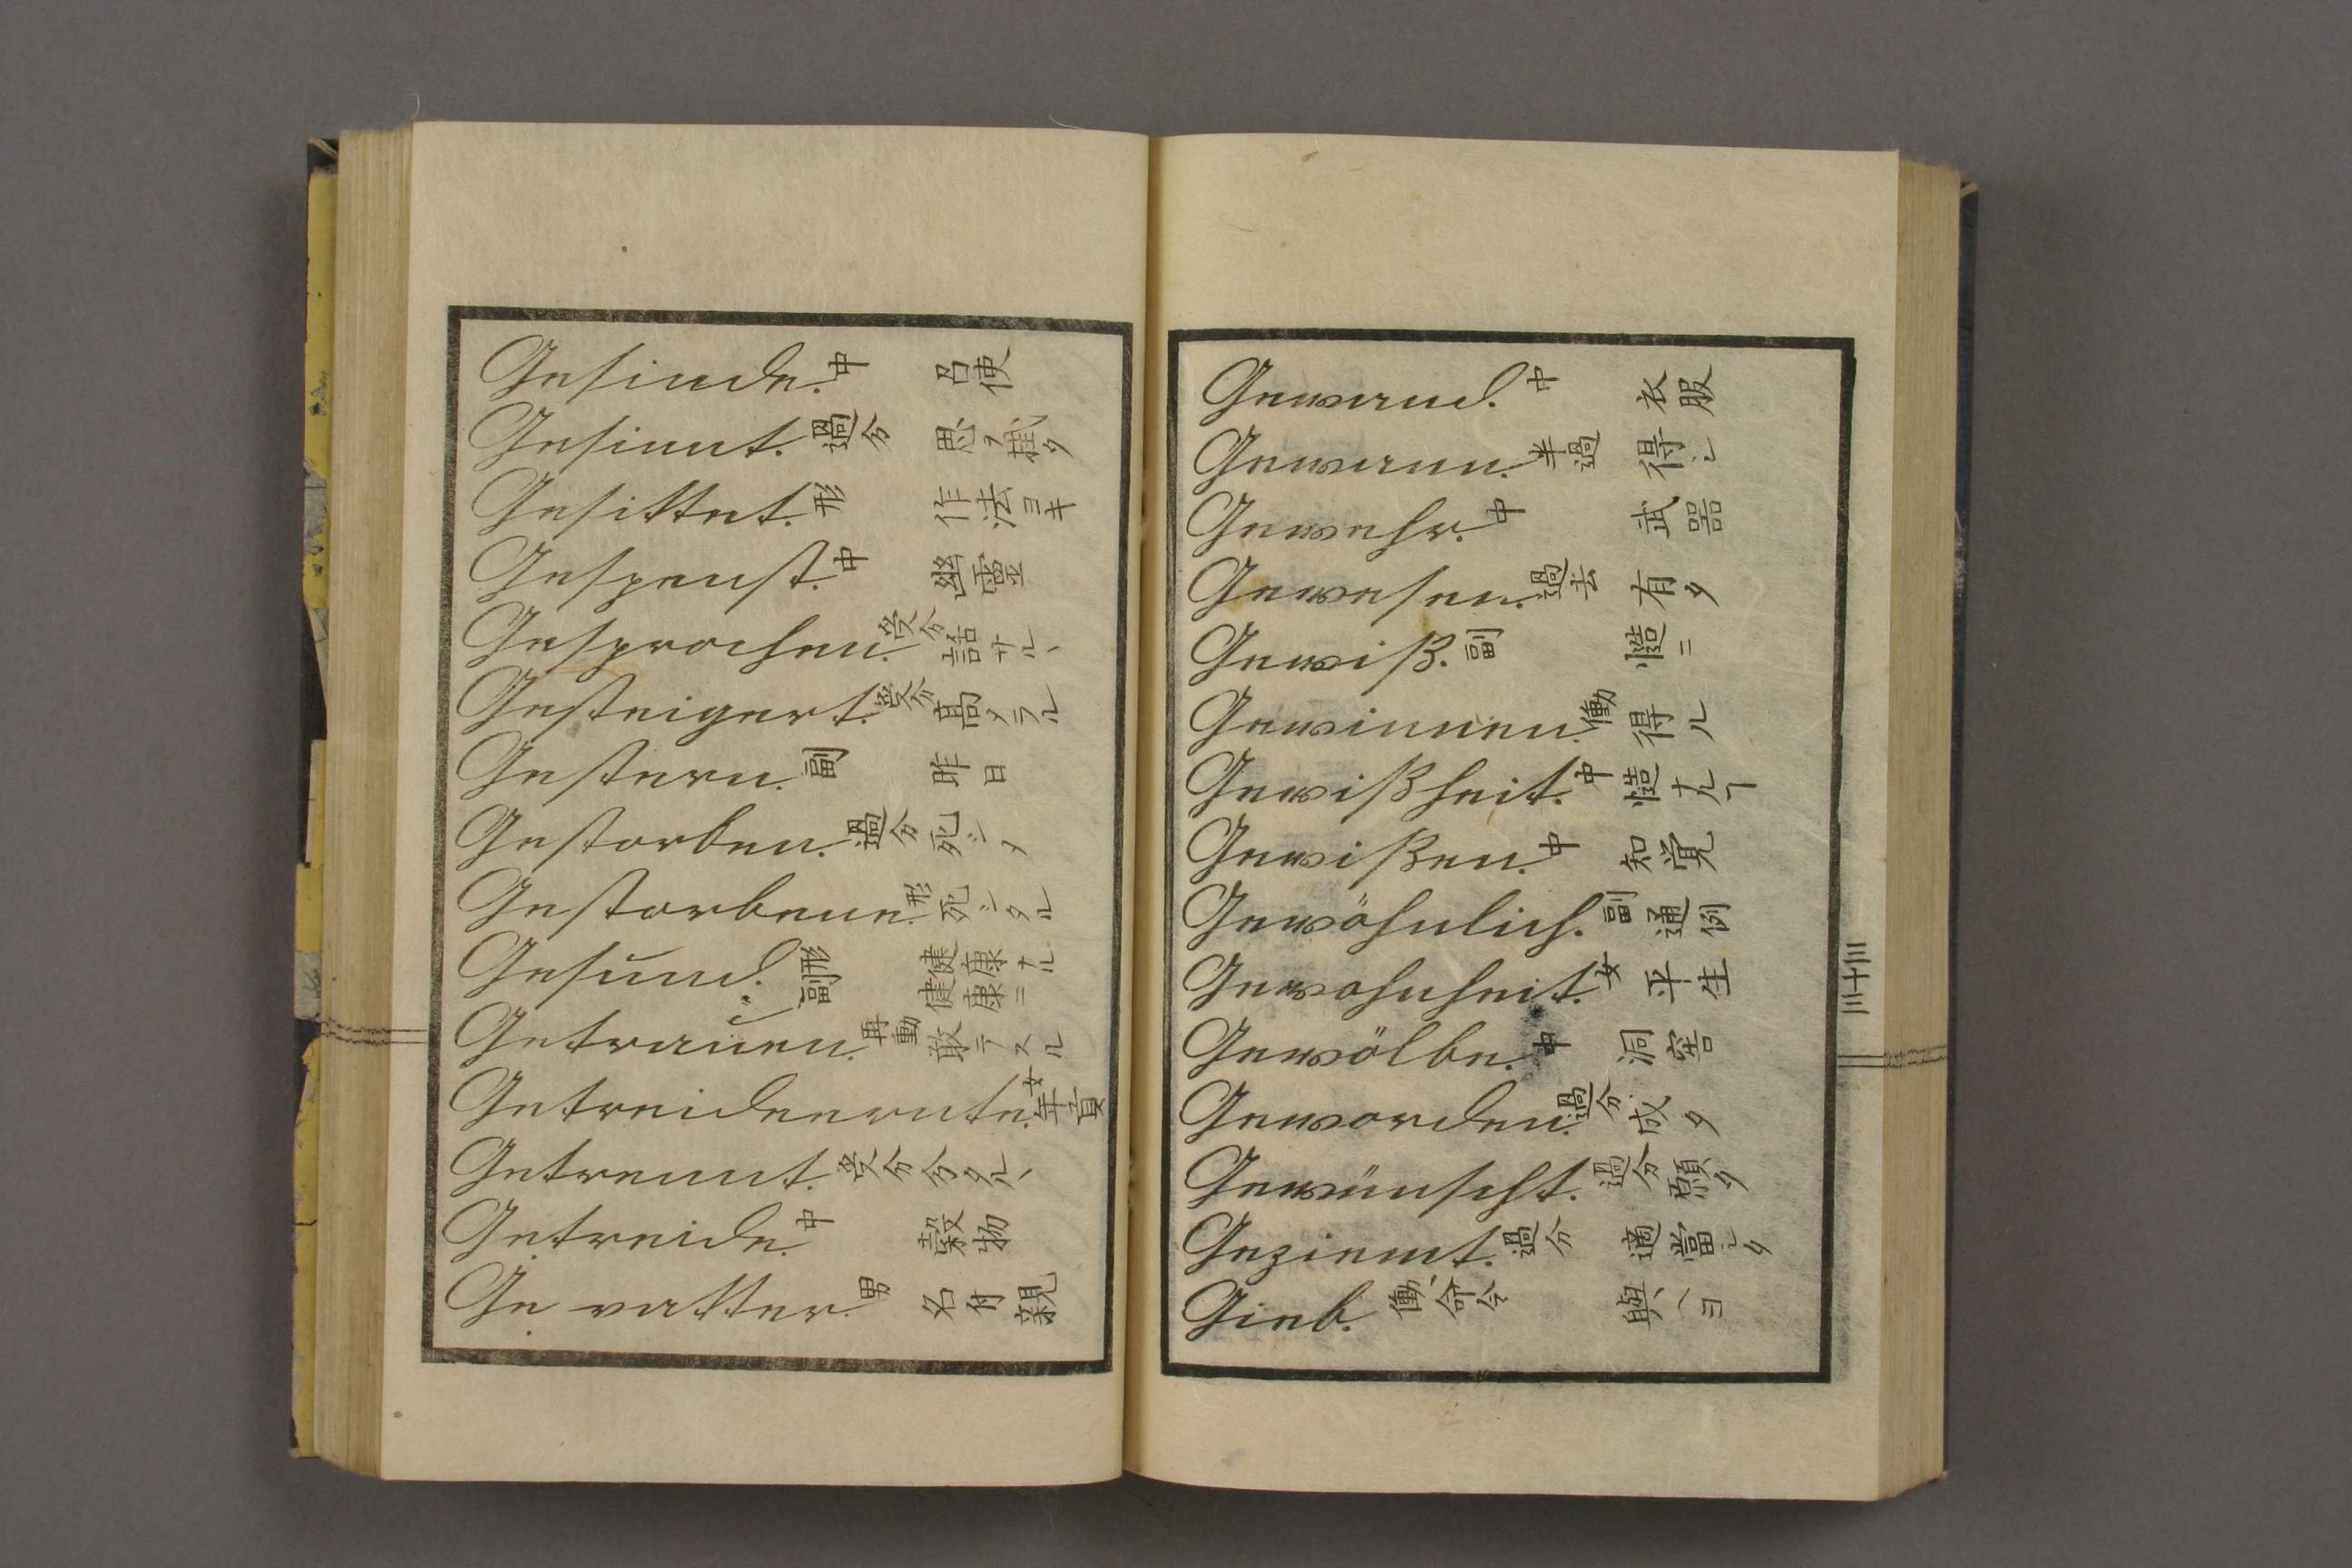 Gesinde. 中 召使
Gesinnt. 過分 思ヲ掛タ
Gesittet. 形 作法ヨキ
Gespenst. 中 幽靈
Gesprochen. 受分 語サル、
Gesteigert. 受分 高メラル
Gestern. 副 昨日
Gestorben. 過分 死シタ
Gestorbene. 形 死シタル
Gesund. 形副 健康ナル 健康ニ
Getrauen. 再動 敢テスル
Getreideernte. 女 年貢
Getrennt. 受分 分タル、
Getreide. 中 穀物
Gevatter. 男 名付親
Gewand. 中 衣服
Gewann. 半過 得シ
Gewehr. 中 武器
Gewesen. 過去 有タ
Gewiß. 副 慥ニ
Gewinnen. 働 得ル
Gewißheit. 中 慥ナルヿ
Gewißen. 中 知覚
Gewöhnlich. 副 通例
Gewohnheit. 女 平生
Gewölbe. 中 洞窖
Geworden. 過分 成タ
Gewünscht. 過分 願タ
Geziemt. 過分 適當シタ
Gieb. 働、命令 與ヘヨ
三十三